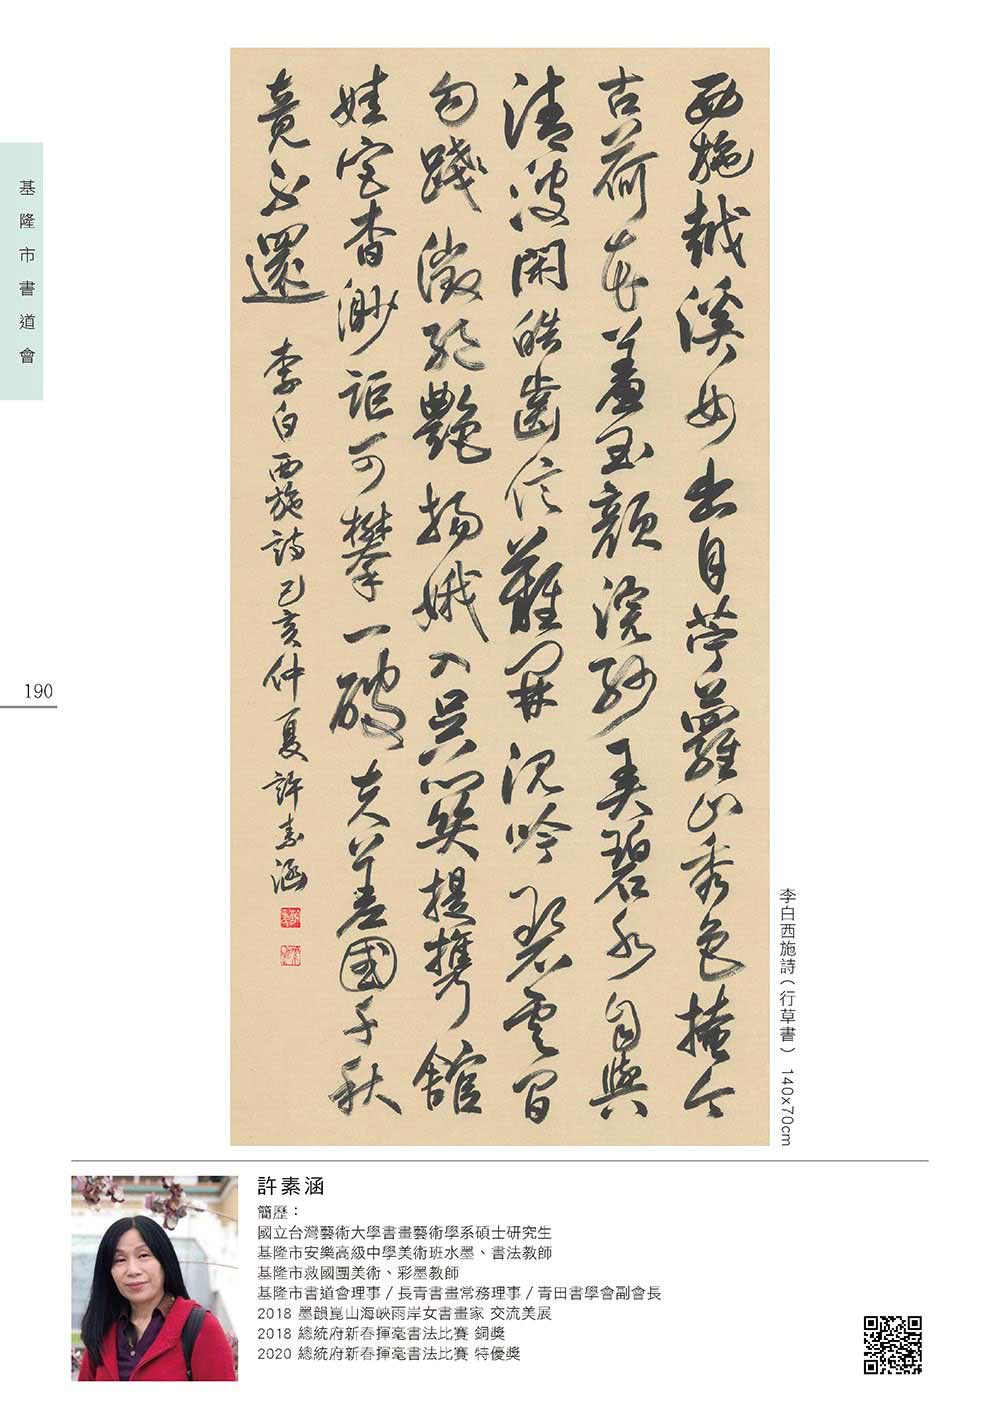 基隆市書道會
190
西施越溪女出自苧蘿山秀色掩今
古荷花羞玉顏浣紗弄碧水自與
清波閑皓齒信難開沈吟碧雲間
勾踐徵絕艷揚娥入吳關提攜館
娃宮杳渺詎可攀一破夫差國千秋
竟不還
李白西施詩己亥仲夏許素涵
李白西施詩(行草書) 140x70cm
許素涵
簡歷：
國立台灣藝術大學書畫藝術學系碩士研究生
基隆市安樂高級中學美術班水墨、書法教師
基隆市救國團美術、彩墨教師
基隆市書道會理事 / 長青書畫常務理事 / 青田書學會副會長
2018 墨韻崑山海峽兩岸女書畫家 交流美展
2018 總統府新春揮毫書法比賽 銅獎
2020 總統府新春揮毫書法比賽 特優獎